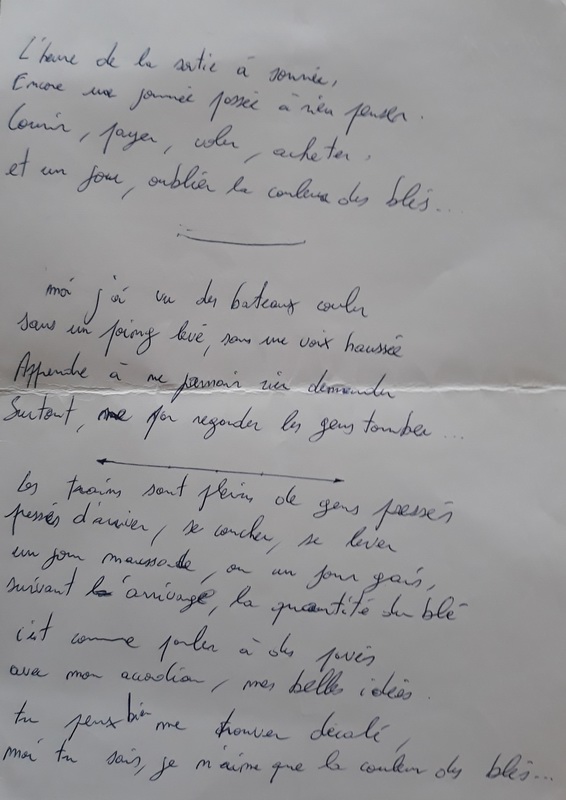 L'heure de la sortie à sonnée,
Encore une journée passée à rien penser.
Courir, payer, voler, acheter,
et un jour, oublier la couleur des blés...
moi j'ai vu des bateaux couler
sans un poing levé, sans une voix haussée
Apprendre à ne jamais rien demander
Surtout, ne pas regarder les gens tomber...
Les trains sont pleins de gens pressés
pressés d'arriver, se coucher, se lever
un jour maussade, ou un jour gais,
suivant l'arrivage, la quantité du blé
c'est comme parler à des pavés
avec mon accordéon, mes belles idées.
tu peux bien me trouver décalé,
moi tu sais, je n'aime que la couleur des blés...